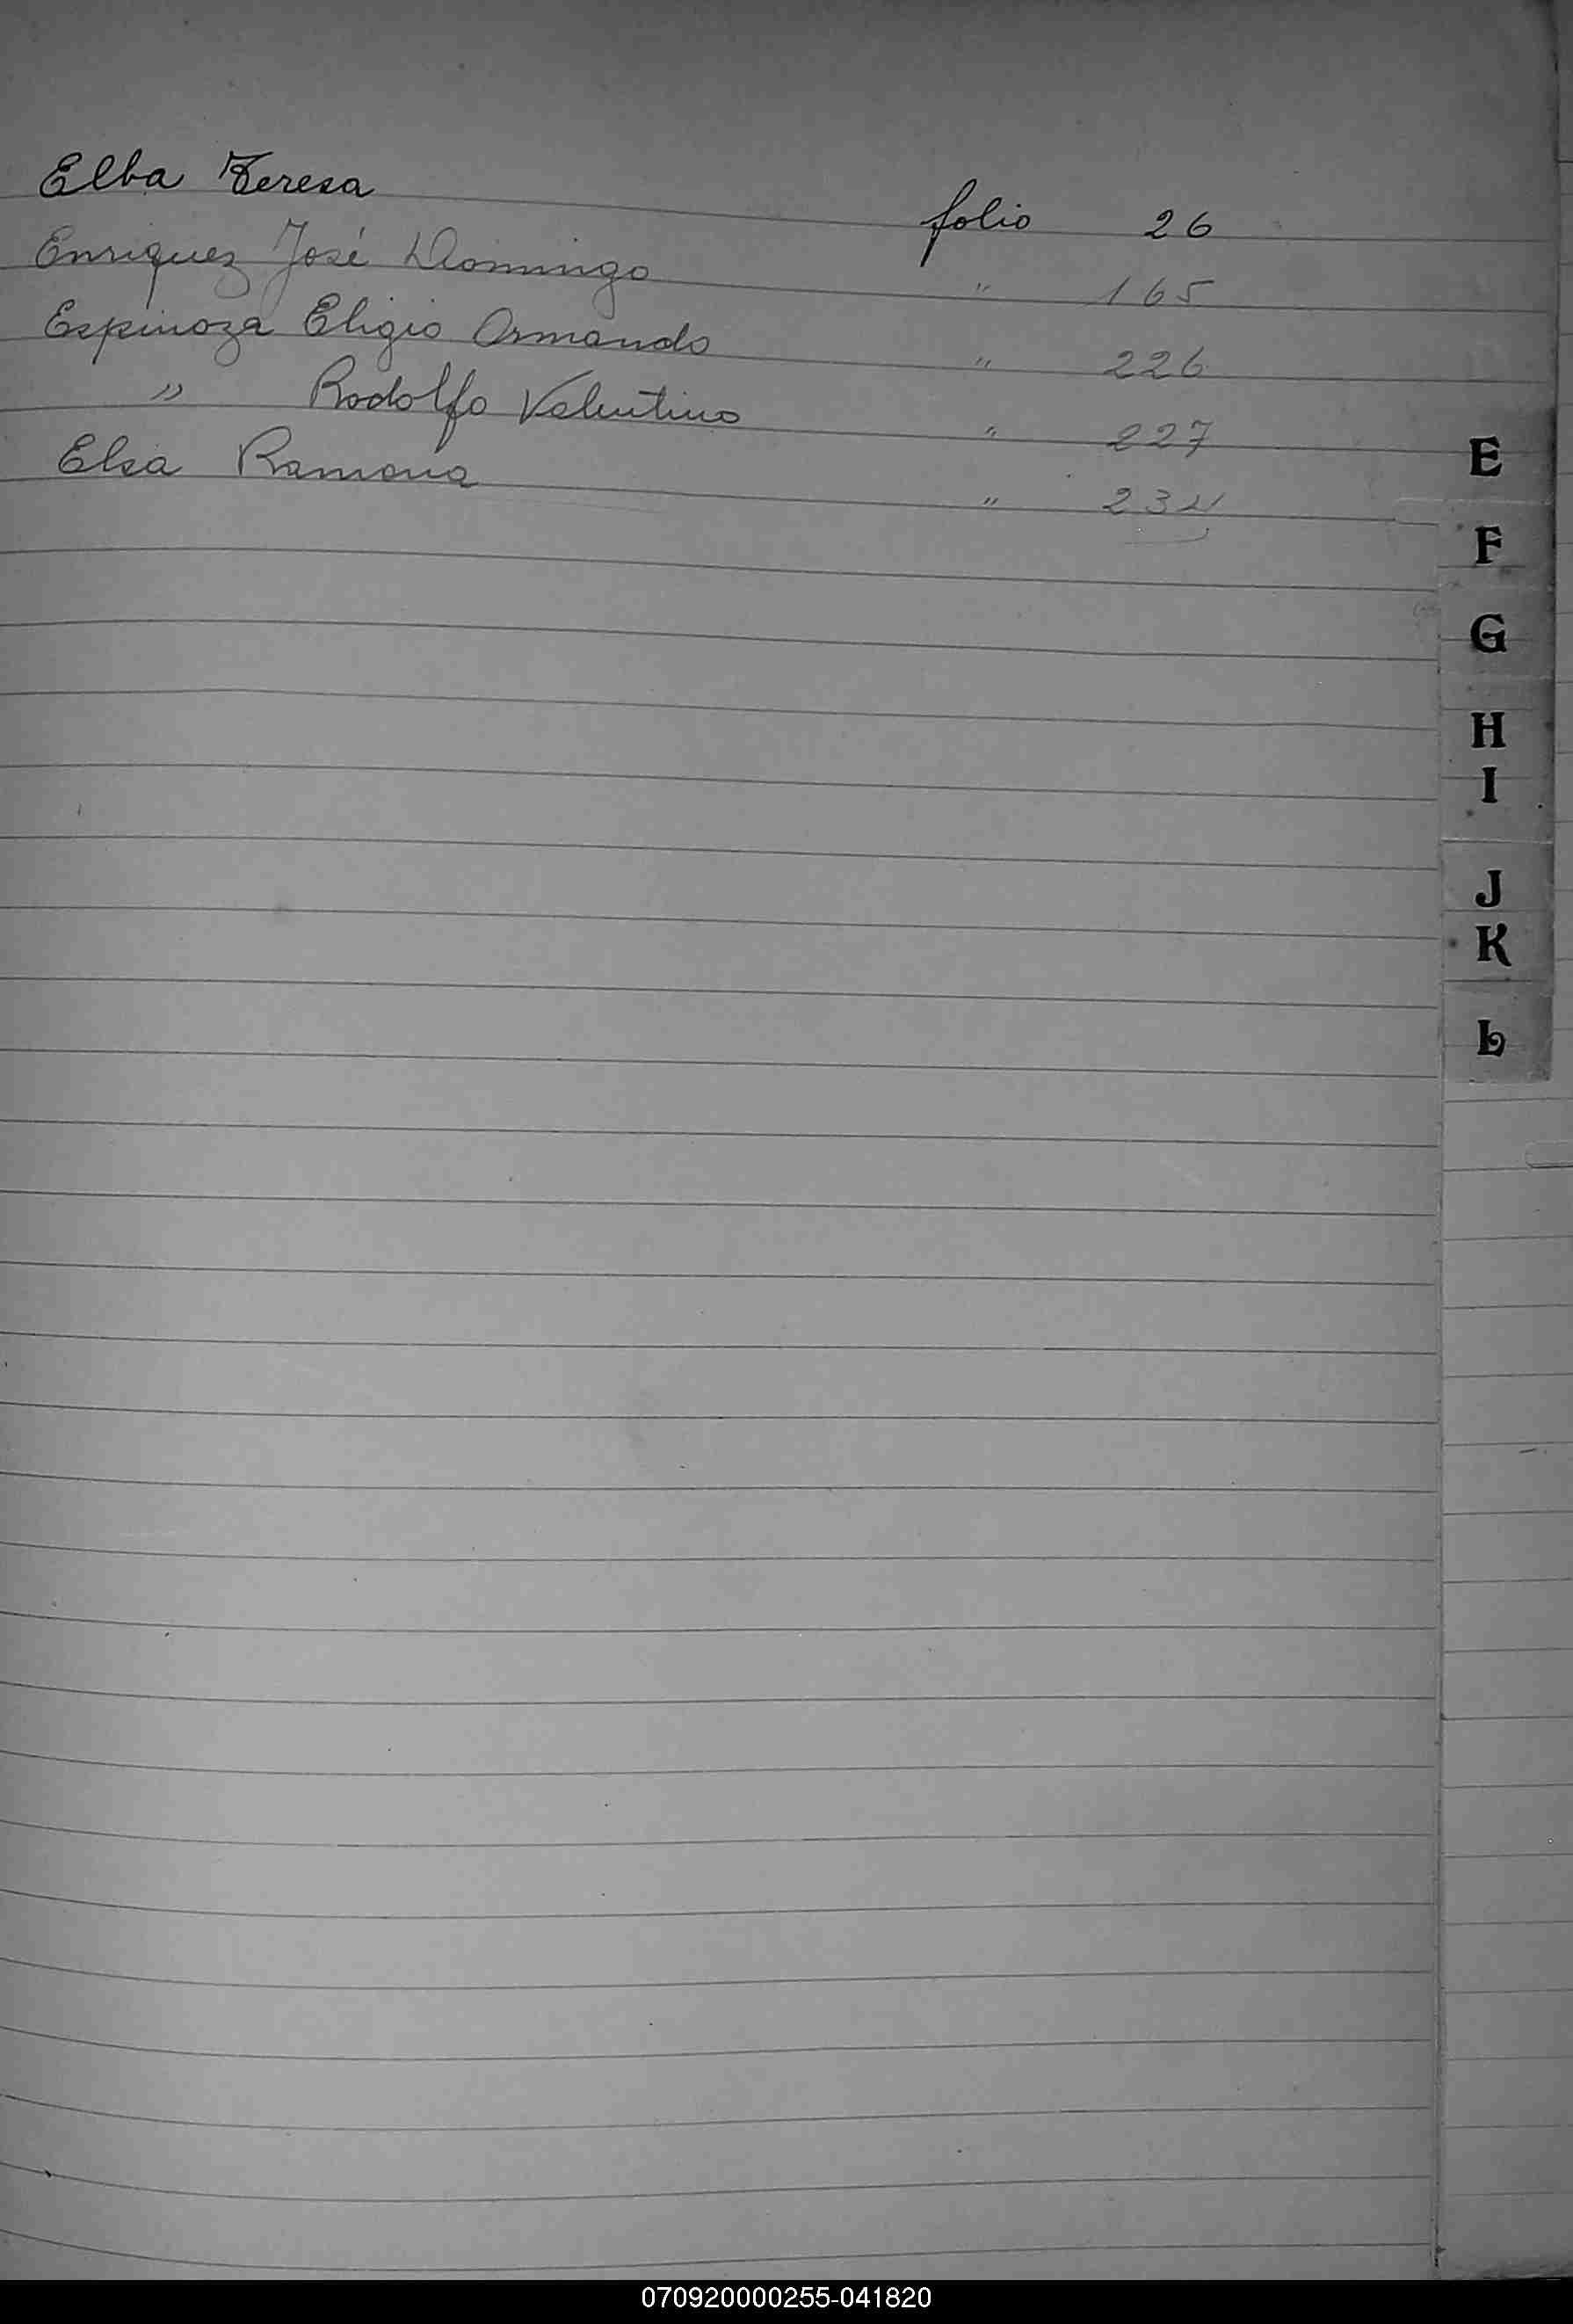 Elba Teresa folio 26
Enriquez José Domingo " 165
Espinoza Eligio Armando " 226
" Rodolfo Valentino " 227
Elsa Ramona " 234
E
F
G
H
I
J
K
L
070920000255-041820